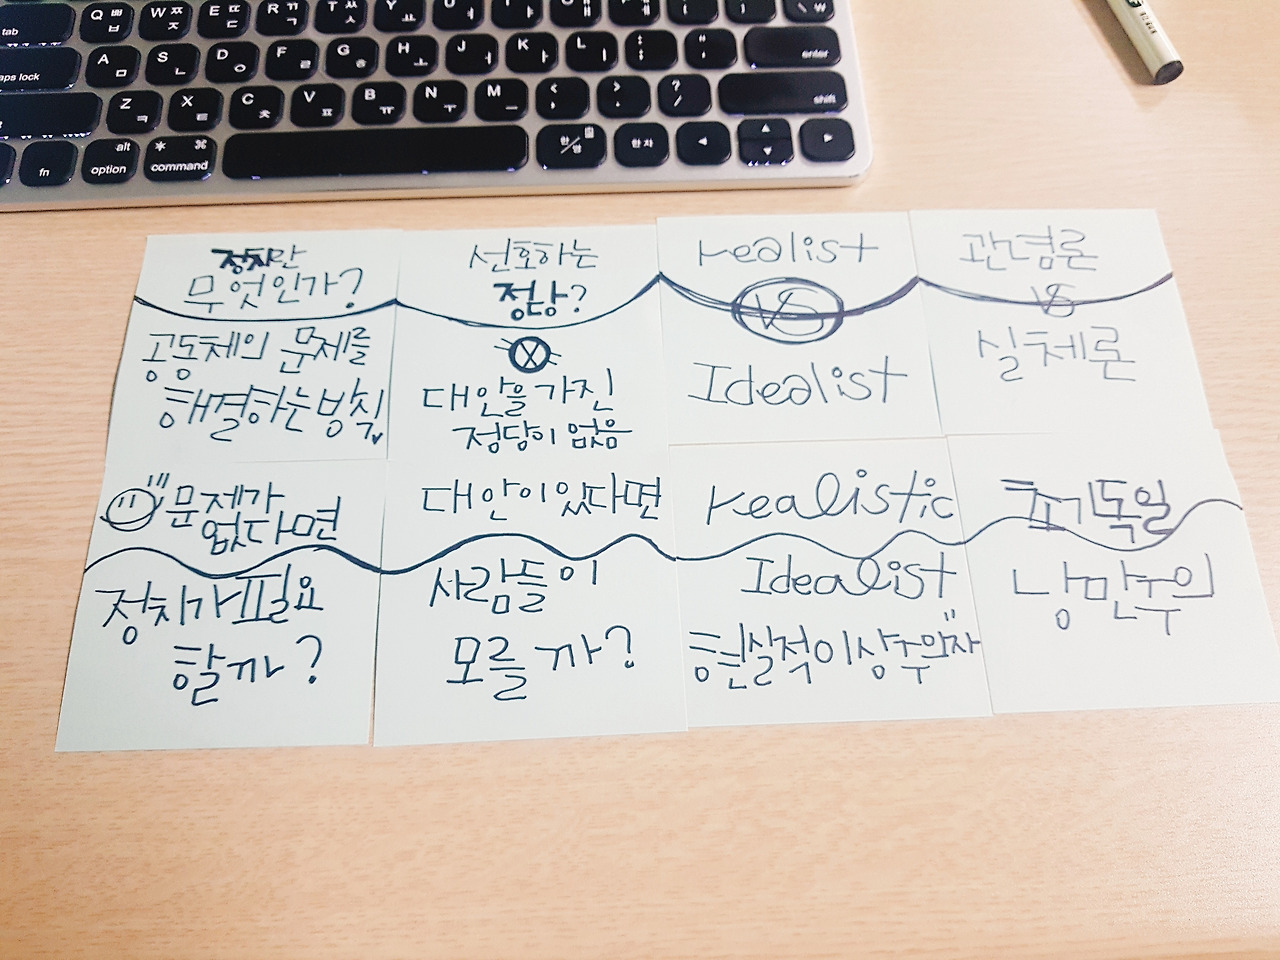 tab
Q ㅃ ㅂ
W ㅉ ㅈ
E ㄸ ㄷ
R ㄲ ㄱ
T ㅆ ㅅ
caps lock
A ㅁ
S ㄴ
D ㅇ
F ㄹ
G ㅎ
H ㅗ
J ㅓ
K ㅏ
L ㅣ
enter
Z ㅋ
X ㅌ
C ㅊ
V ㅍ
B ㅠ
N ㅜ
M ㅡ
< ,
> .
? /
shift
fn
alt
option
⌘
command
한/영
한자
정치란
무엇인가?
공동체의 문제를
해결하는 방식
선호하는
정당?
대안을 가진
정당이 없음
realist
VS
Idealist
관념론
VS
실체론
문제가
없다면
정치가 필요
할까?
대안이 있다면
사람들이
모를까?
realistic
Idealist
현실적이상주의자
초기독일
낭만주의